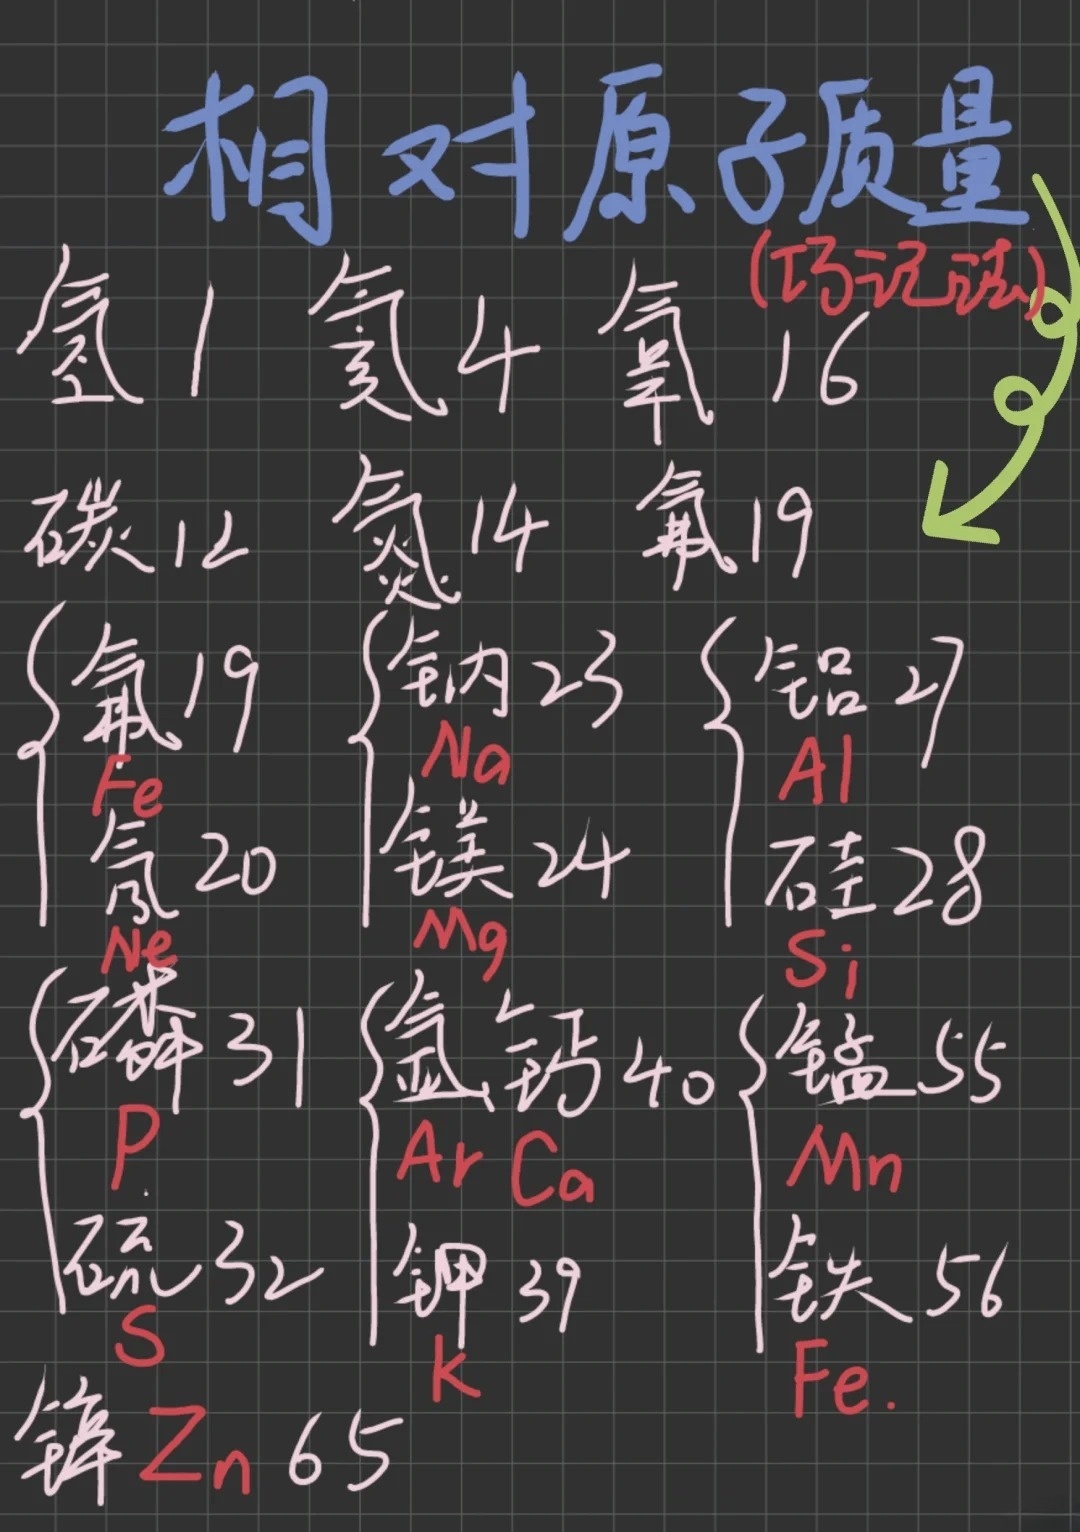 相对原子质量
(巧记法)
氢 1 氦 4 氧 16
碳 12 氮 14 氟 19
氟 19 钠 23 铝 27
Fe Na Al
氖 20 镁 24 硅 28
Ne Mg Si
磷 31 氩 钙 40 锰 55
P Ar Ca Mn
硫 32 钾 39 铁 56
S K Fe.
锌 Zn 65